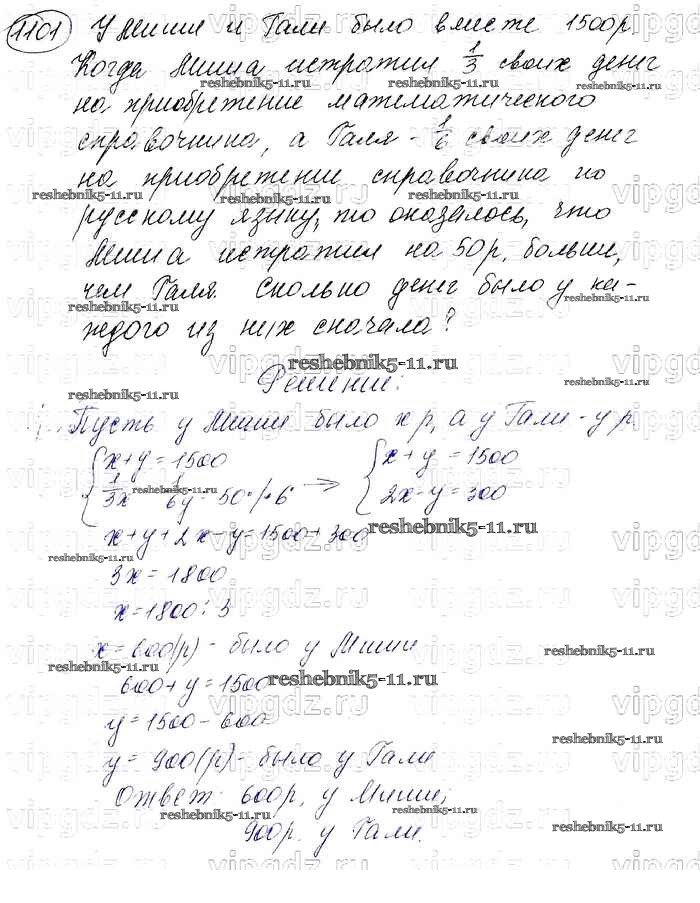 1101 У Миши и Гали было вместе 1500р.
Когда Миша истратил 1/3 своих денег
на приобретение математического
справочника, а Галя - 1/6 своих денег
на приобретение справочника по
русскому языку, то оказалось, что
Миша истратил на 50р. больше,
чем Галя. Сколько денег было у ка-
ждого из них сначала?
Решение:
Пусть у Миши было x р, а у Гали - y р.
x+y=1500 → x+y=1500
1/3x 6y=50 /·6 2x-y=300
x+y+2x-y=1500+300
3x=1800
x=1800:3
x=600(р) - было у Миши
600+y=1500
y=1500-600
y=900(р) - было у Гали
Ответ: 600р. у Миши;
900р. у Гали.
reshebnik5-11.ru
vipgdz.ru